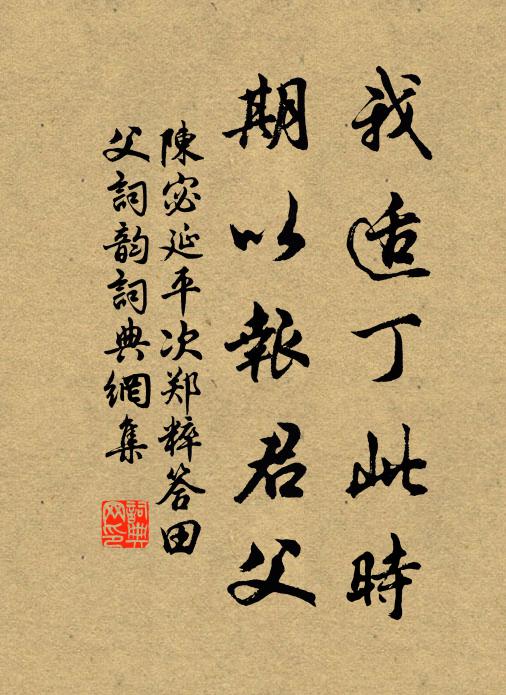 我适丁此時
期以報君父
陳宓延平次郑粹答田
父詞韵詞典網集
詞典
网印